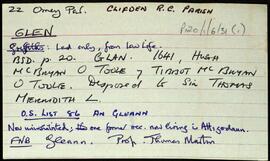 22 Omey Par. CLIFDEN R.C. PARISH
P120/1/6/31 (1)
GLEN
Griffith: Land only, from Law Life.
BSD. p. 20. GLAN. 1641, HUGH
MC BRYAN O TOOLE, TIBBOT MC BRYAN
O TOOLE. Disposed to Sir THOMAS
MEREDITH L.
O.S. LIST 86 AN GLEANN
Now uninhabited, the one former occ. now living in Attigoddaun.
FNB Gleann. Prof. Thomas Martin